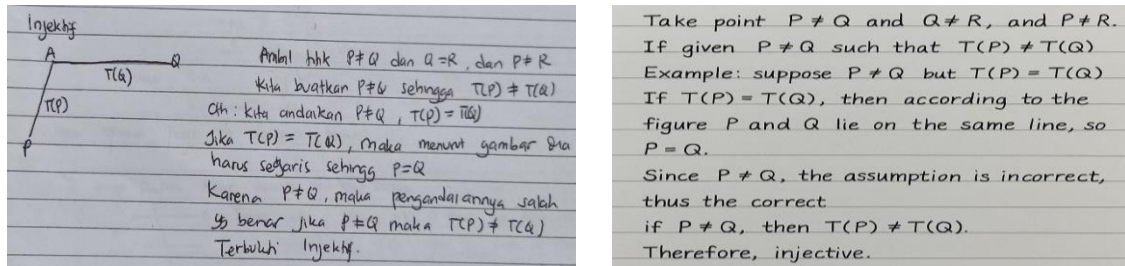 Injektif
A
Q
T(Q)
T(P)
P
Ambil titik P ≠ Q dan Q = R, dan P ≠ R
Kita buatkan P ≠ Q sehingga T(P) ≠ T(Q)
Cth : kita andaikan P ≠ Q , T(P) = T(Q)
Jika T(P) = T(Q), maka menurut gambar dia
harus segaris sehingg P = Q
Karena P ≠ Q, maka pengandaiannya salah
yg benar jika P ≠ Q maka T(P) ≠ T(Q)
Terbukti Injektif.
Take point P ≠ Q and Q ≠ R, and P ≠ R.
If given P ≠ Q such that T(P) ≠ T(Q)
Example: suppose P ≠ Q but T(P) = T(Q)
If T(P) = T(Q), then according to the
figure P and Q lie on the same line, so
P = Q.
Since P ≠ Q, the assumption is incorrect,
thus the correct
if P ≠ Q, then T(P) ≠ T(Q).
Therefore, injective.